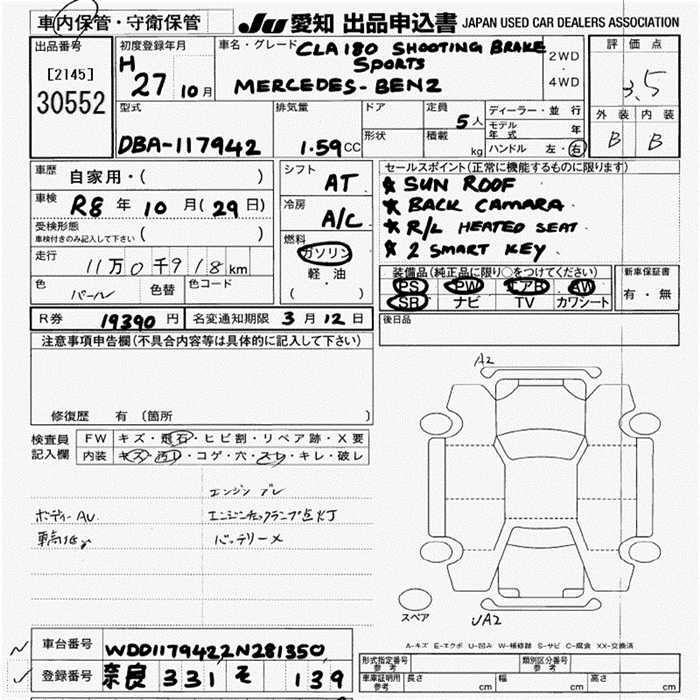 車内保管・守衛保管
JU 愛知 出品申込書 JAPAN USED CAR DEALERS ASSOCIATION
出品番号
[2145]
30552
初度登録年月
H 27 10月
車名・グレード
CLA180 SHOOTING BRAKE
SPORTS
MERCEDES-BENZ
2WD
・
4WD
評価点
3.5
外装 内装
B B
型式
DBA-117942
排気量
1.59CC
ドア
形状
定員
5人
積載
kg
ディーラー・並行
モデル年式 年
ハンドル 左・右
車歴 自家用・( )
車検 R8年10月(29日)
受検形態
車検付きのみ記入して下さい ( )
走行 11万0千918km
色 パール 色替 色コード
シフト
AT
冷房
A/C
燃料
ガソリン
軽・油
( )
セールスポイント(正常に機能するものに限ります)
★ SUN ROOF
★ BACK CAMARA
★ R/L HEATED SEAT
★ 2 SMART KEY
装備品(純正品に限り○をつけてください)
PS PW エアB AW
SR ナビ TV カワシート
新車保証書
有・無
R券 19390円 名変通知期限 3月12日
後日品
注意事項申告欄(不具合内容等は具体的に記入して下さい)
修復歴 有(箇所 )
検査員記入欄
FW キズ・飛石・ヒビ割・リペア跡・X要
内装 キズ・汚レ・コゲ・穴・スレ・キレ・破レ
エンジンブレ
ボディーAU エンジンチェックランプ点灯
バッテリーメ
A2
スペア
UA2
A-キズ E-エクボ U-凹み W-補修跡 S-サビ C-腐食 XX-交換済
車台番号 WDD1179422N281350
登録番号 奈良 331 そ 139
形式指定番号 参考
類別区分番号 参考
車庫証明用 参考 長さ cm 幅 cm 高さ cm